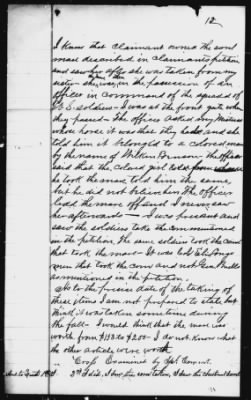 12
I know that claimant owned the sorrel
mare described in claimant's petition
and saw her after she was taken from my
in the possession of an
officer in command of the squad of
U.S. soldiers - I was at the front gate when
they passed - The officer asked my Mistress
whose horse it was that they had, and she
told him it belonged to a colored man
by the name of The officer
said that the colored girl
he took the mare told him the same,
but he did not believe him The officer
lead the mare off and I never saw
her afterwards - I was present and
saw the soldiers take the corn mentioned
in the petition. The same soldiers took the corn
that took the mare - It was
men that took the corn and not
as mentioned in the petition -
As to the precise date of the taking of
these items I am not prepared to state, but
think it was taken sometime during
the fall - I would think that the mare was
worth from $150 to $200 - I do not know what
the other articles were worth
Cross Examined by Spl. Comr.
2nd I did, I saw the corn taken, I saw the